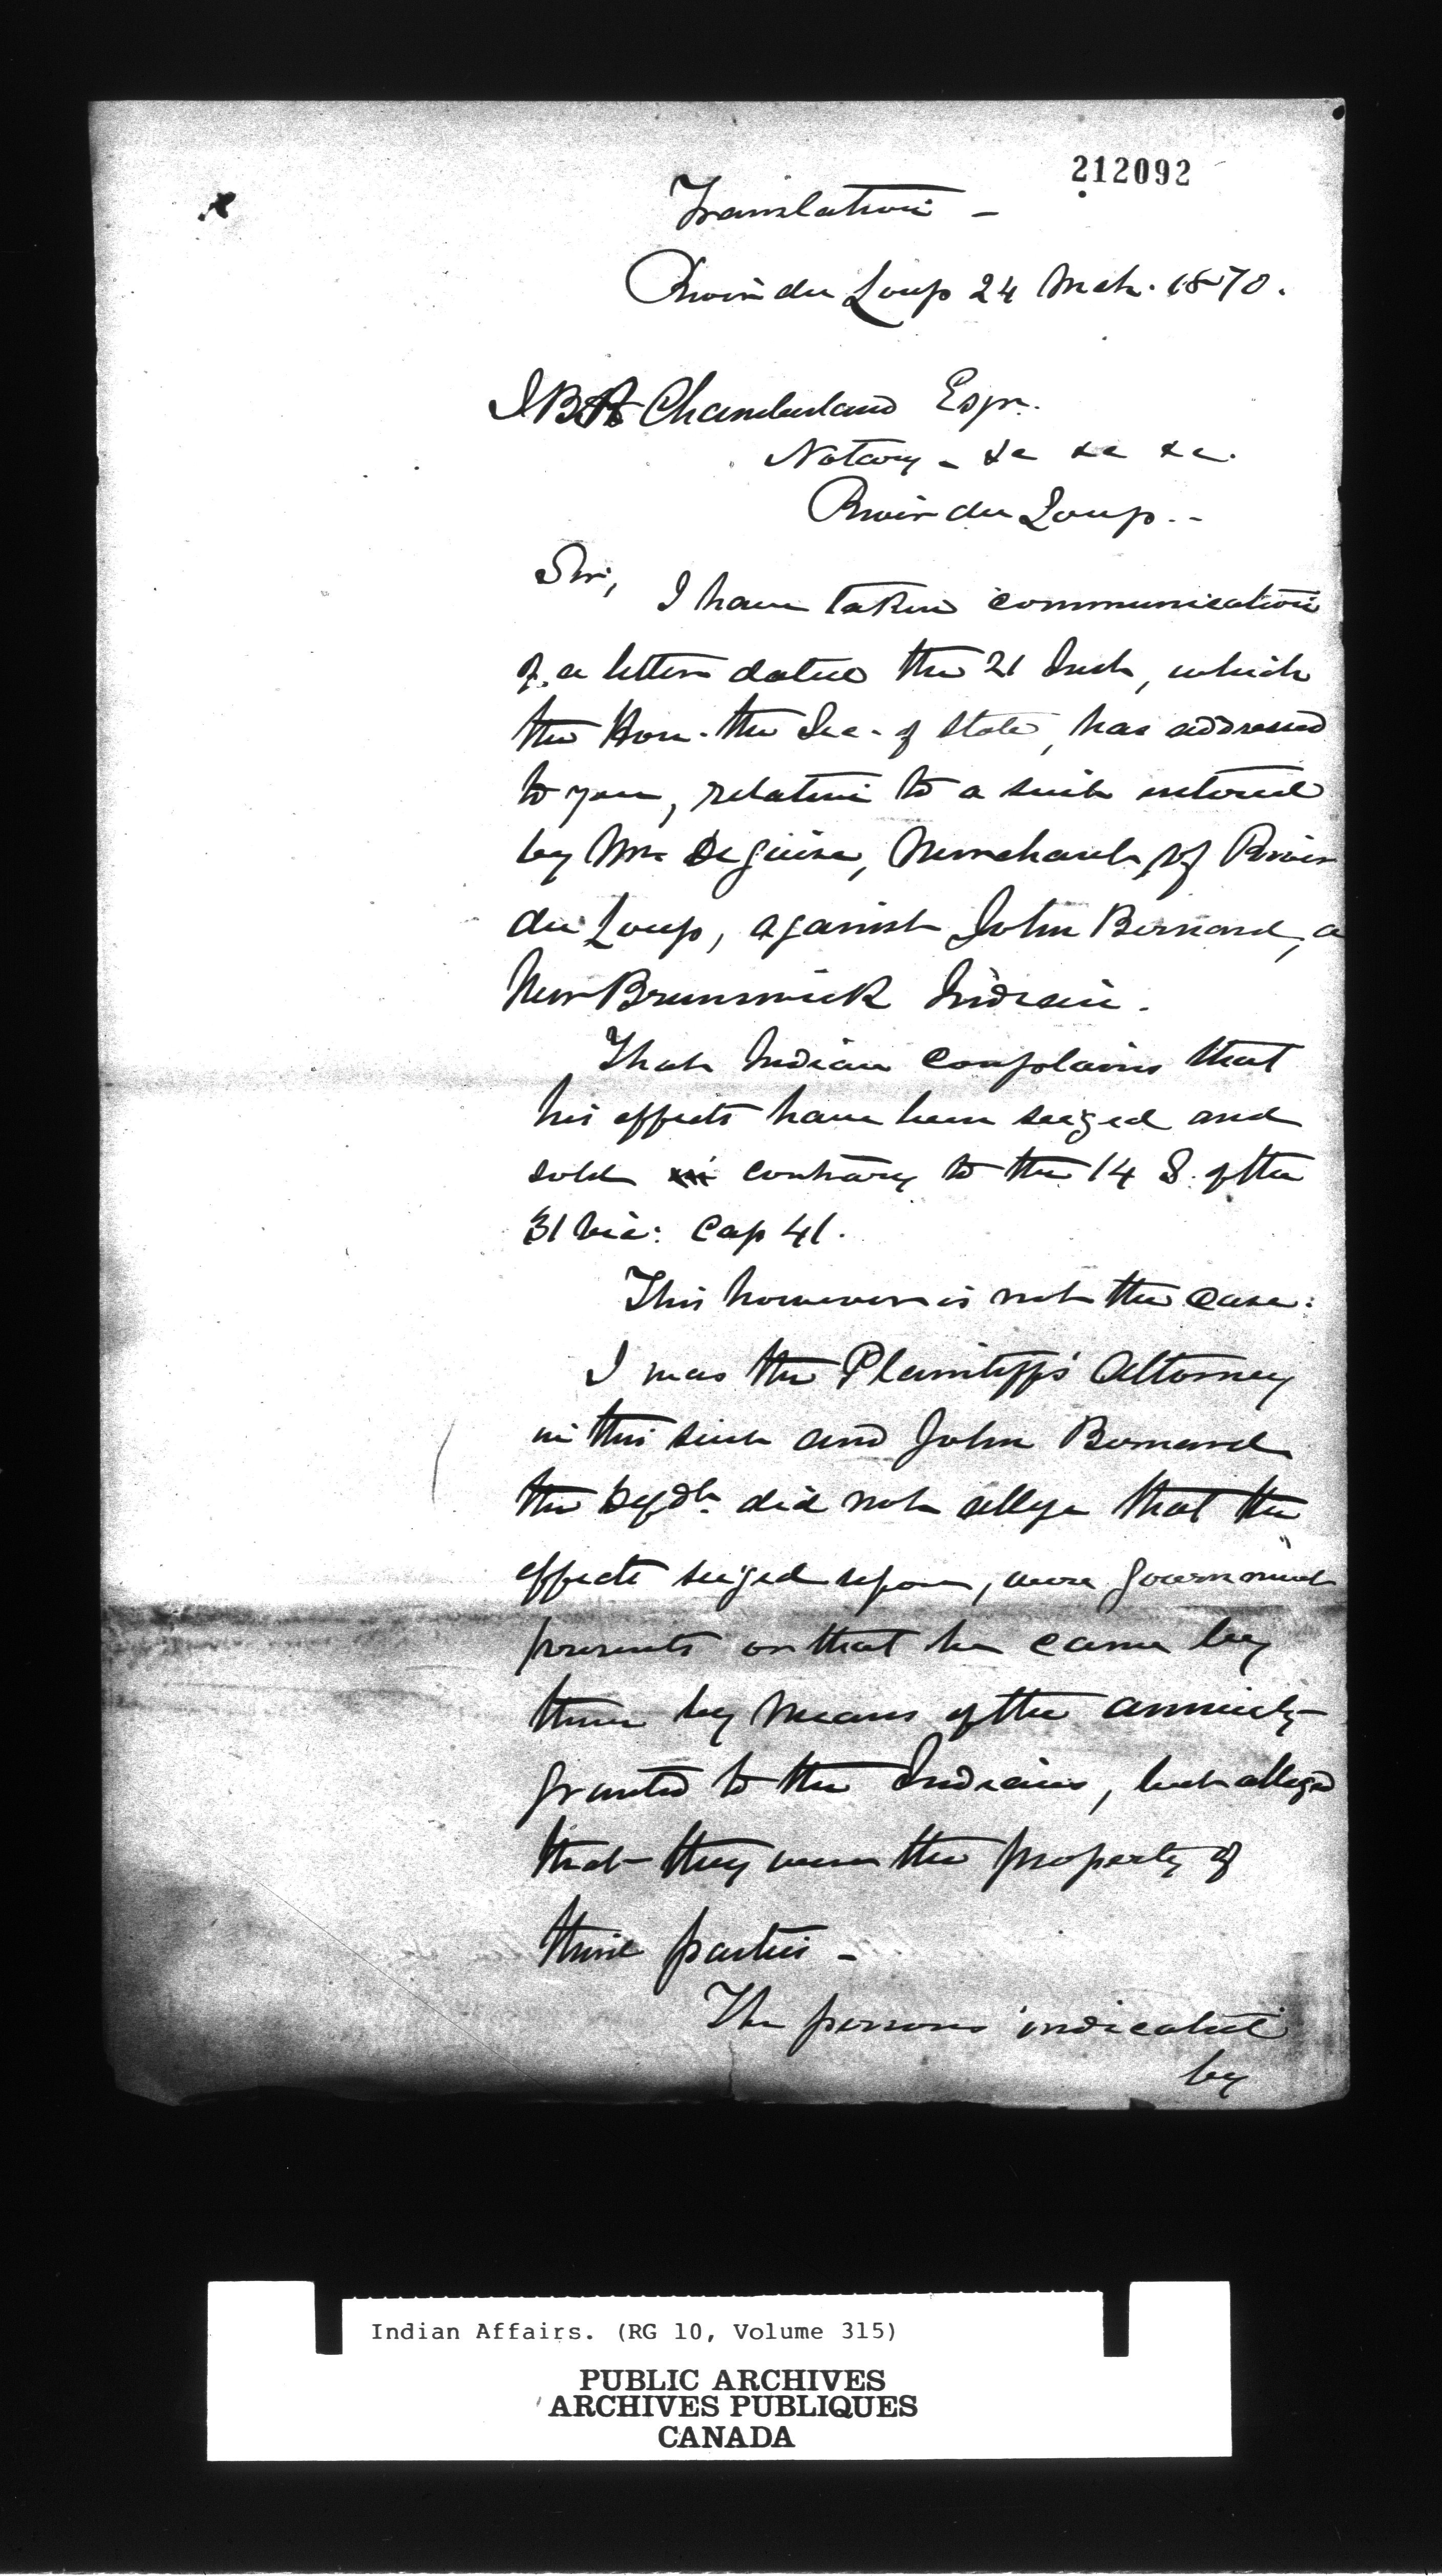 212092
Translation -
Rivière du Loup 24 Mch. 1870.
J B A Chamberland Esqr.
Notary - &c &c &c.
Rivière du Loup. -
Sir,
I have taken communication
of a letter dated the 21 Inst, which
the Hon. the Sec. of State, has addressed
to you, relative to a suit entered
by Mr. DeGuise, Merchant of River
du Loup, against John Bernard, a
New Brunswick Indian.
That Indian complains that
his effects have been seized and
sold contrary to the 14 S. of the
31 Vic: Cap 41.
This however is not the case:
I was the Plaintiff's Attorney
in this suit and John Bernard
the Defdt. did not allege that the
effects seized upon, were government
presents or that he came by
them by means of the annuity
granted to the Indians, but alleged
that they were the property of
third parties -
The persons indicated
by
Indian Affairs. (RG 10, Volume 315)
PUBLIC ARCHIVES
ARCHIVES PUBLIQUES
CANADA